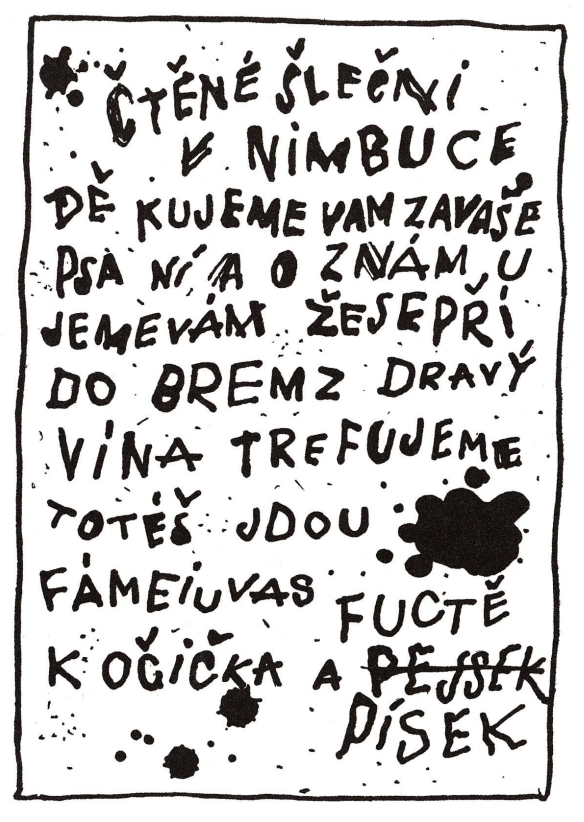 ČTĚNÉ ŠLEČŇÍ
V NIMBUCE
DĚ KUJEME VAM ZAVAŠE
PSA NÍ A O ZNÁM,U
JEMEVÁM ŽESEPŘÍ
DO BREMZ DRAVÝ
VÍNA TREFUJEME
TOTÉŠ JDOU
FÁMEIUVAS
FUCTĚ
K OČIČKA A PEJSEK
PÍSEK